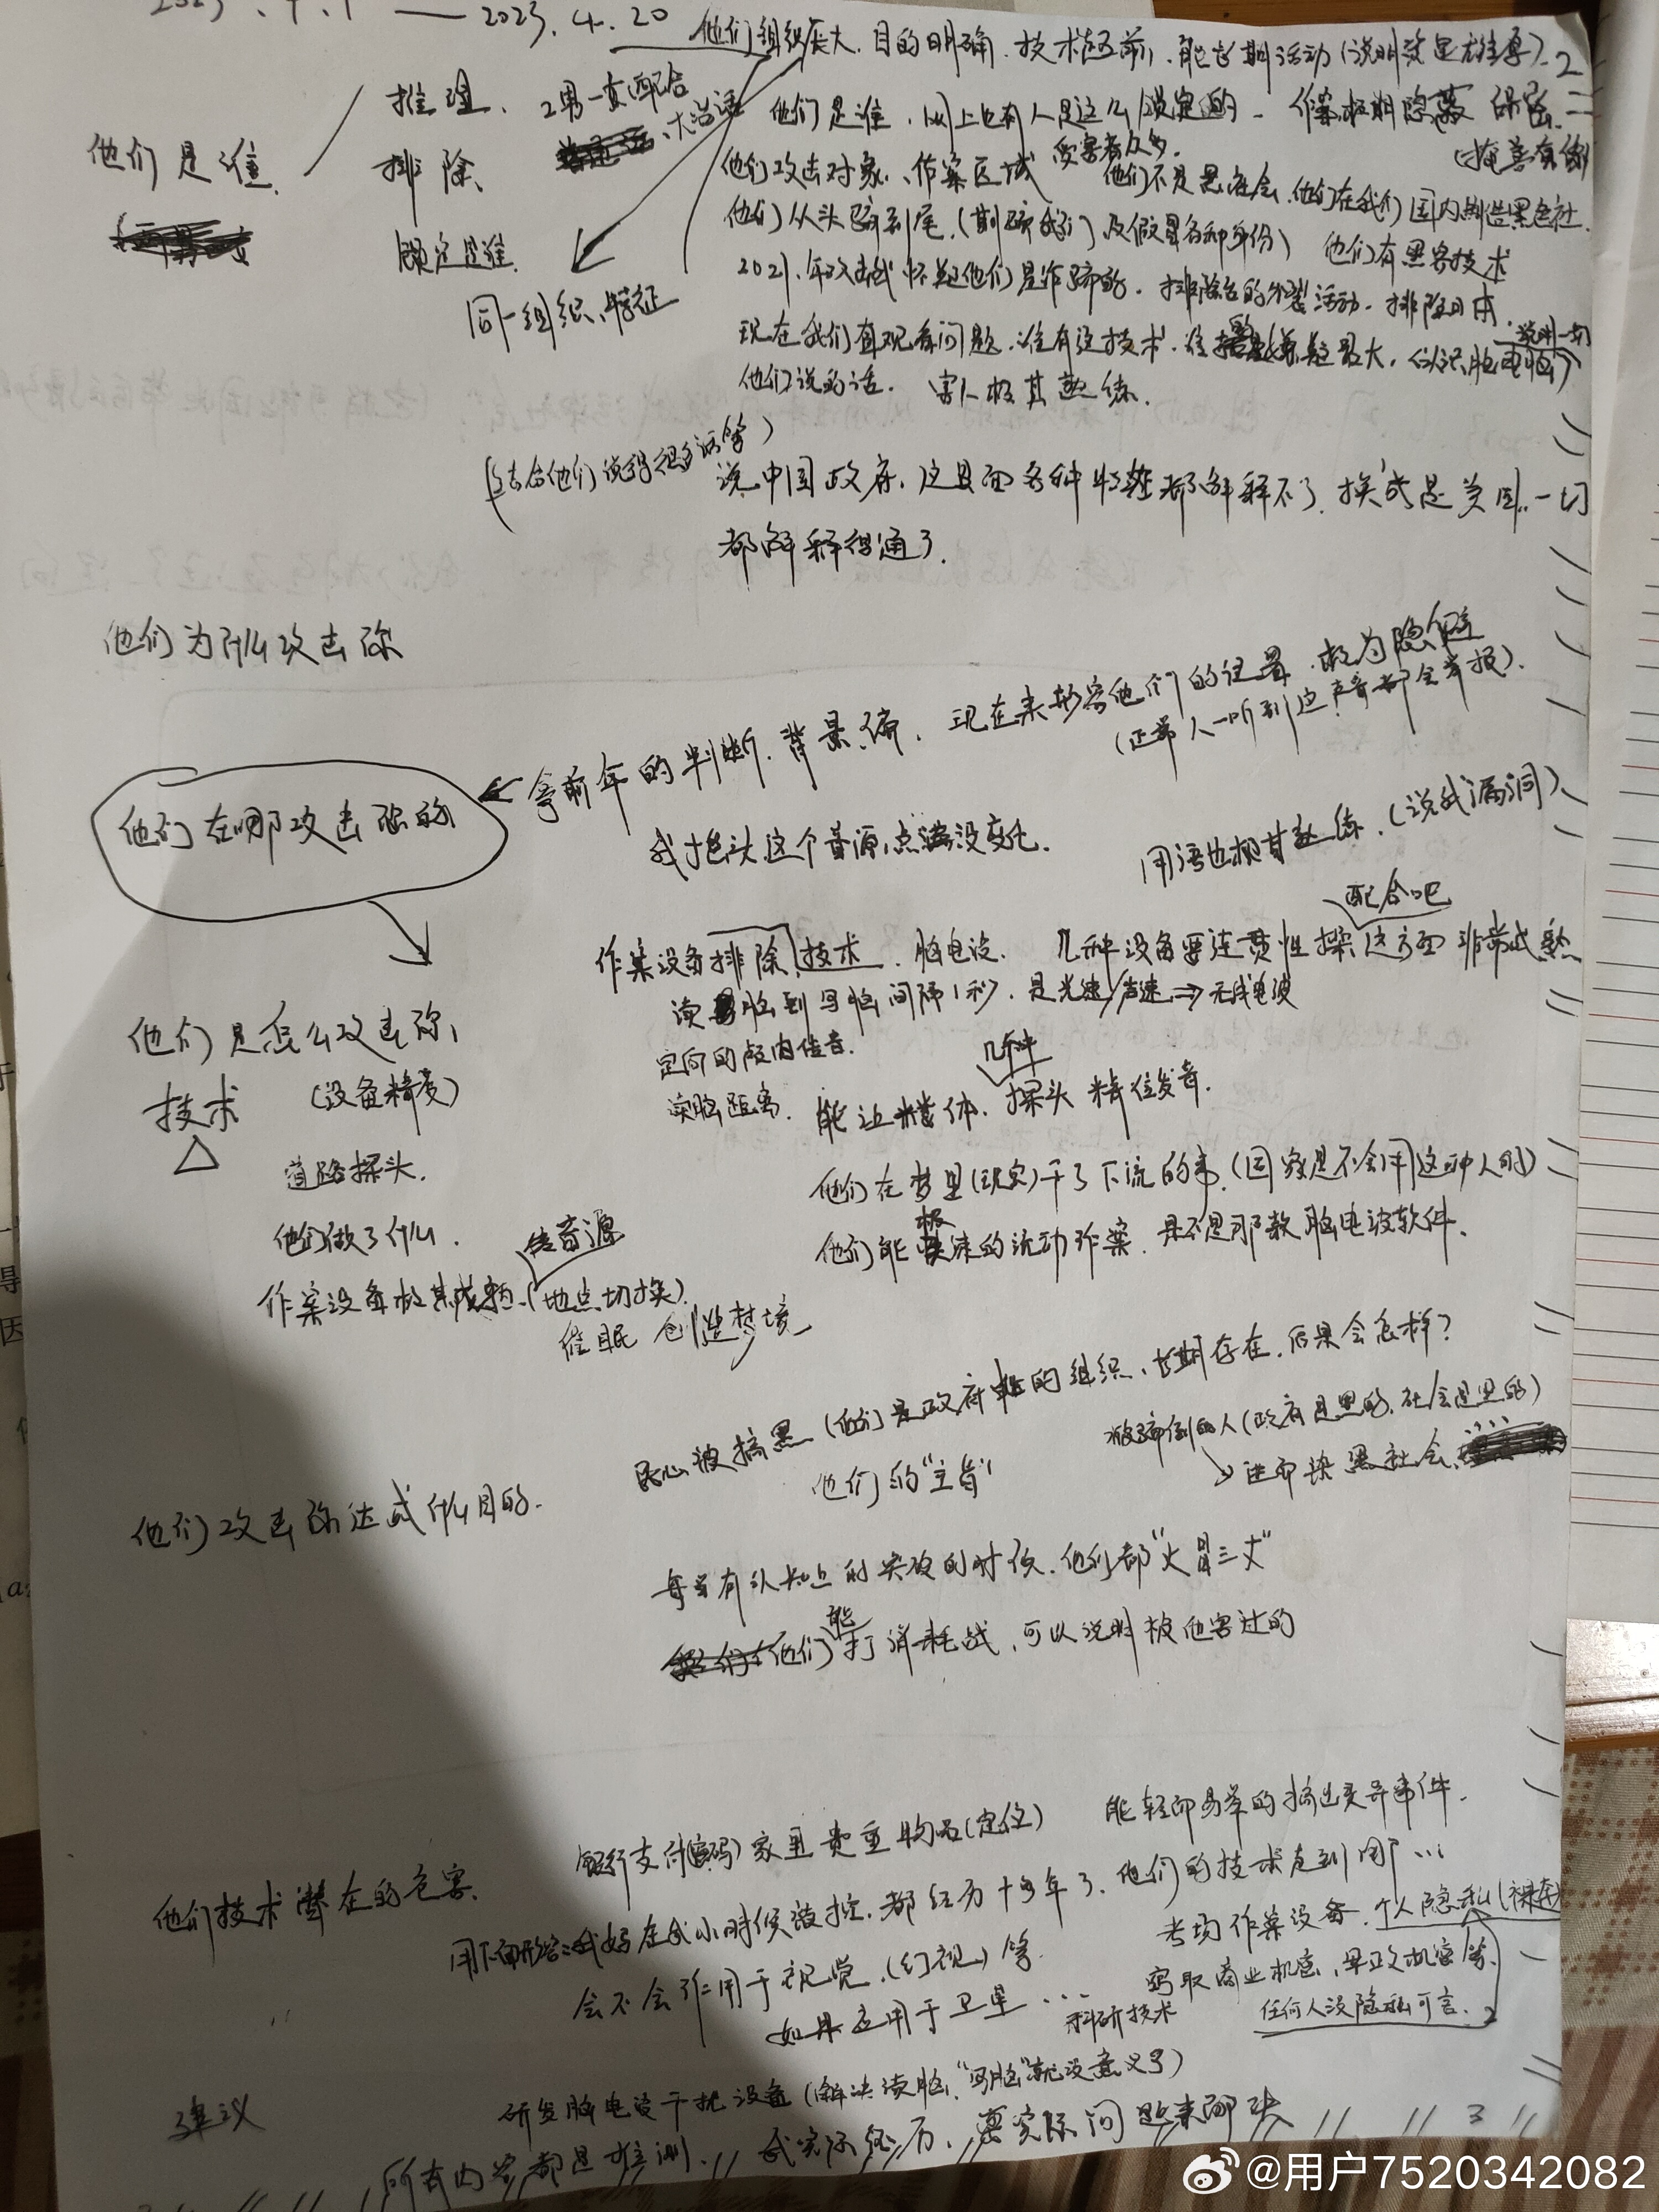 2023.4.1 — 2023.4.20
他们组织庞大、目的明确、技术超前、能长期活动(说明资金雄厚)-2
推理、 2男一女配合
他们是谁、
大活话
排除、
他们是谁、网上也有人是这么锁定的 - 作案极期隐蔽
(掩盖有
他们攻击对象、作案区域 受害者众多.
他们不是黑社会.他们在我们国内制造黑色社
他们从头骗到尾.( 及假冒各种身份) 他们有黑客技术
锁定是谁.
同一组织、特征
2021.年攻击我怀疑他们是诈骗的. 排除台的分裂活动. 排除日本.
现在我们直观看问题.谁有这技术.谁 嫌疑最大. 说明一切
他们说的话. 害人极其熟练.
(结合他们 很多 等)
说中国政府.这里面各种特征都解释不了.换成是美国..一切
都解释得通了.
他们为什么攻击你
←拿前年的判断.背景.偏. 现在来形容他们的位置.极为隐僻
(正常人一听到这声音都会举报).
他们在哪攻击你的
我抬头这个音源点 没变化.
用语也极其熟练.(说我漏洞)
配合吧
作案设备排除、技术、脑电波. 几种设备要连贯性操 这方面非常成熟
读脑到写脑间隔1秒.是光速/声速⇒无线电波
他们是怎么攻击你、
定向的颅内传音.
技术 (设备精度)
几种
读脑距离. 能近 体、探头 精 位发音.
道路探头.
他们在梦里(现实)干了下流的事.(国家是不会用这种人的)
他们做了什么.
传音源
他们能极快速的流动作案.是不是那款脑电波软件.
作案设备极其成熟.(地点切换).
催眠 创造梦境
民心被搞黑(他们是政府 的组织、长期存在.后果会怎样?
被骗倒的人(政府是黑的.社会是黑的)
他们的"主旨"
↘进而染黑社会
他们攻击你达成什么目的.
每当有认知上的突破的时候.他们都"火冒三丈"
他们能打消耗战.可以说明被他害过的
能轻而易举的搞出灵异事件.
银行支付(密码)家里贵重物品(定位)
他们技术潜在的危害.
用下面形容:我妈在我小时候被控.都经历十多年了.他们的技术走到哪…
考场作案设备.个人隐私(裸奔)
会不会作用于视觉.(幻视)等.
窃取商业机密、军政机密等.
如果运用于卫星… 科研技术
任何人没隐私可言.
建议
研发脑电波干扰设备(解决读脑."写脑"就没意义了)
所有内容都是推测. 我实际经历、 实际问题来解决 3
@用户7520342082